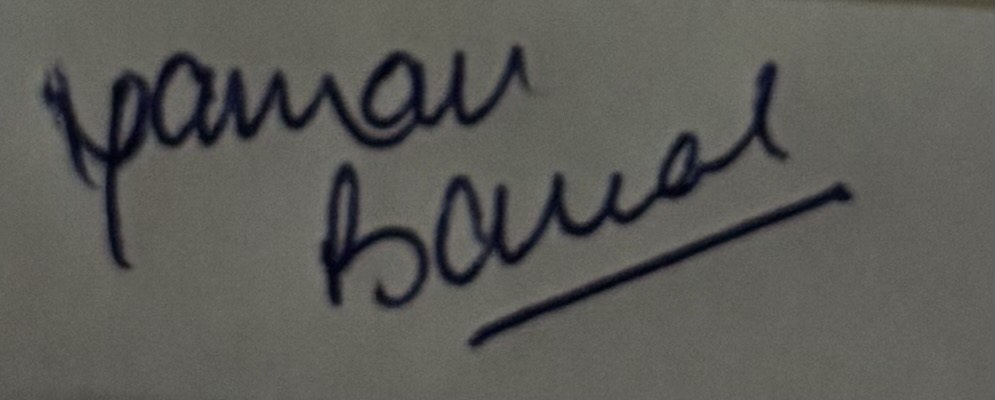 Yaman
Bansal